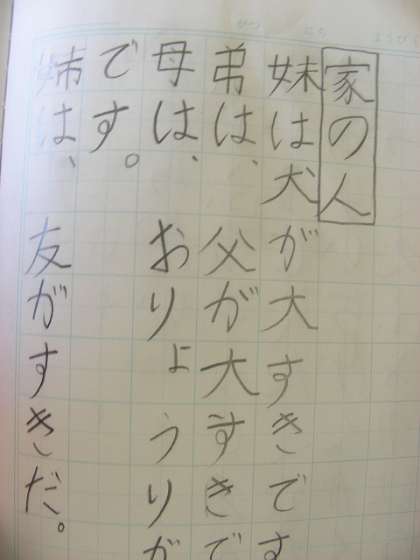 家の人
妹は犬が大すきです
弟は、父が大すきで
母は、おりょうりが
です。
姉は、友がすきだ。